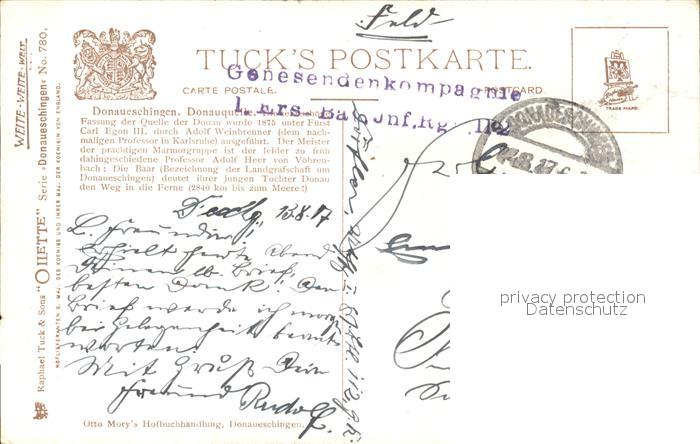 Feld
TUCK'S POSTKARTE.
CARTE POSTALE.
POSTCARD.
TRADE MARK.
Genesendenkompagnie
1. Ers. Bat. Inf. Rg. 112
DONAUESCHINGEN
Donaueschingen. Donauquelle.
Fassung der Quelle der Donau wurde 1875 unter Fürst
Carl Egon III. durch Adolf Weinbrenner (dem nach-
maligen Professor in Karlsruhe) ausgeführt. Der Meister
der prächtigen Marmorgruppe ist der leider zu früh
dahingeschiedene Professor Adolf Heer von Vöhren-
bach: Die Baar (Bezeichnung der Landgrafschaft um
Donaueschingen) deutet ihrer jungen Tochter Donau
den Weg in die Ferne (2840 km bis zum Meere!)
13.8.17
L. Freundin!
Erhielt heute Abend
Deinen lb. Brief,
besten Dank! Den
Brief werde ich morgen
bei Gelegenheit beant-
worten.
Mit Gruß Dein
Freund Rudolf.
Otto Mory's Hofbuchhandlung, Donaueschingen.
WEITE-WEITE-WELT
Raphael Tuck & Sons "OILETTE" Serie „Donaueschingen" No. 780.
HOFLIEFERANTEN S. MAJ. DES KOENIGS UND IHRER MAJ. DER KOENIGIN VON ENGLAND.
privacy protection
Datenschutz